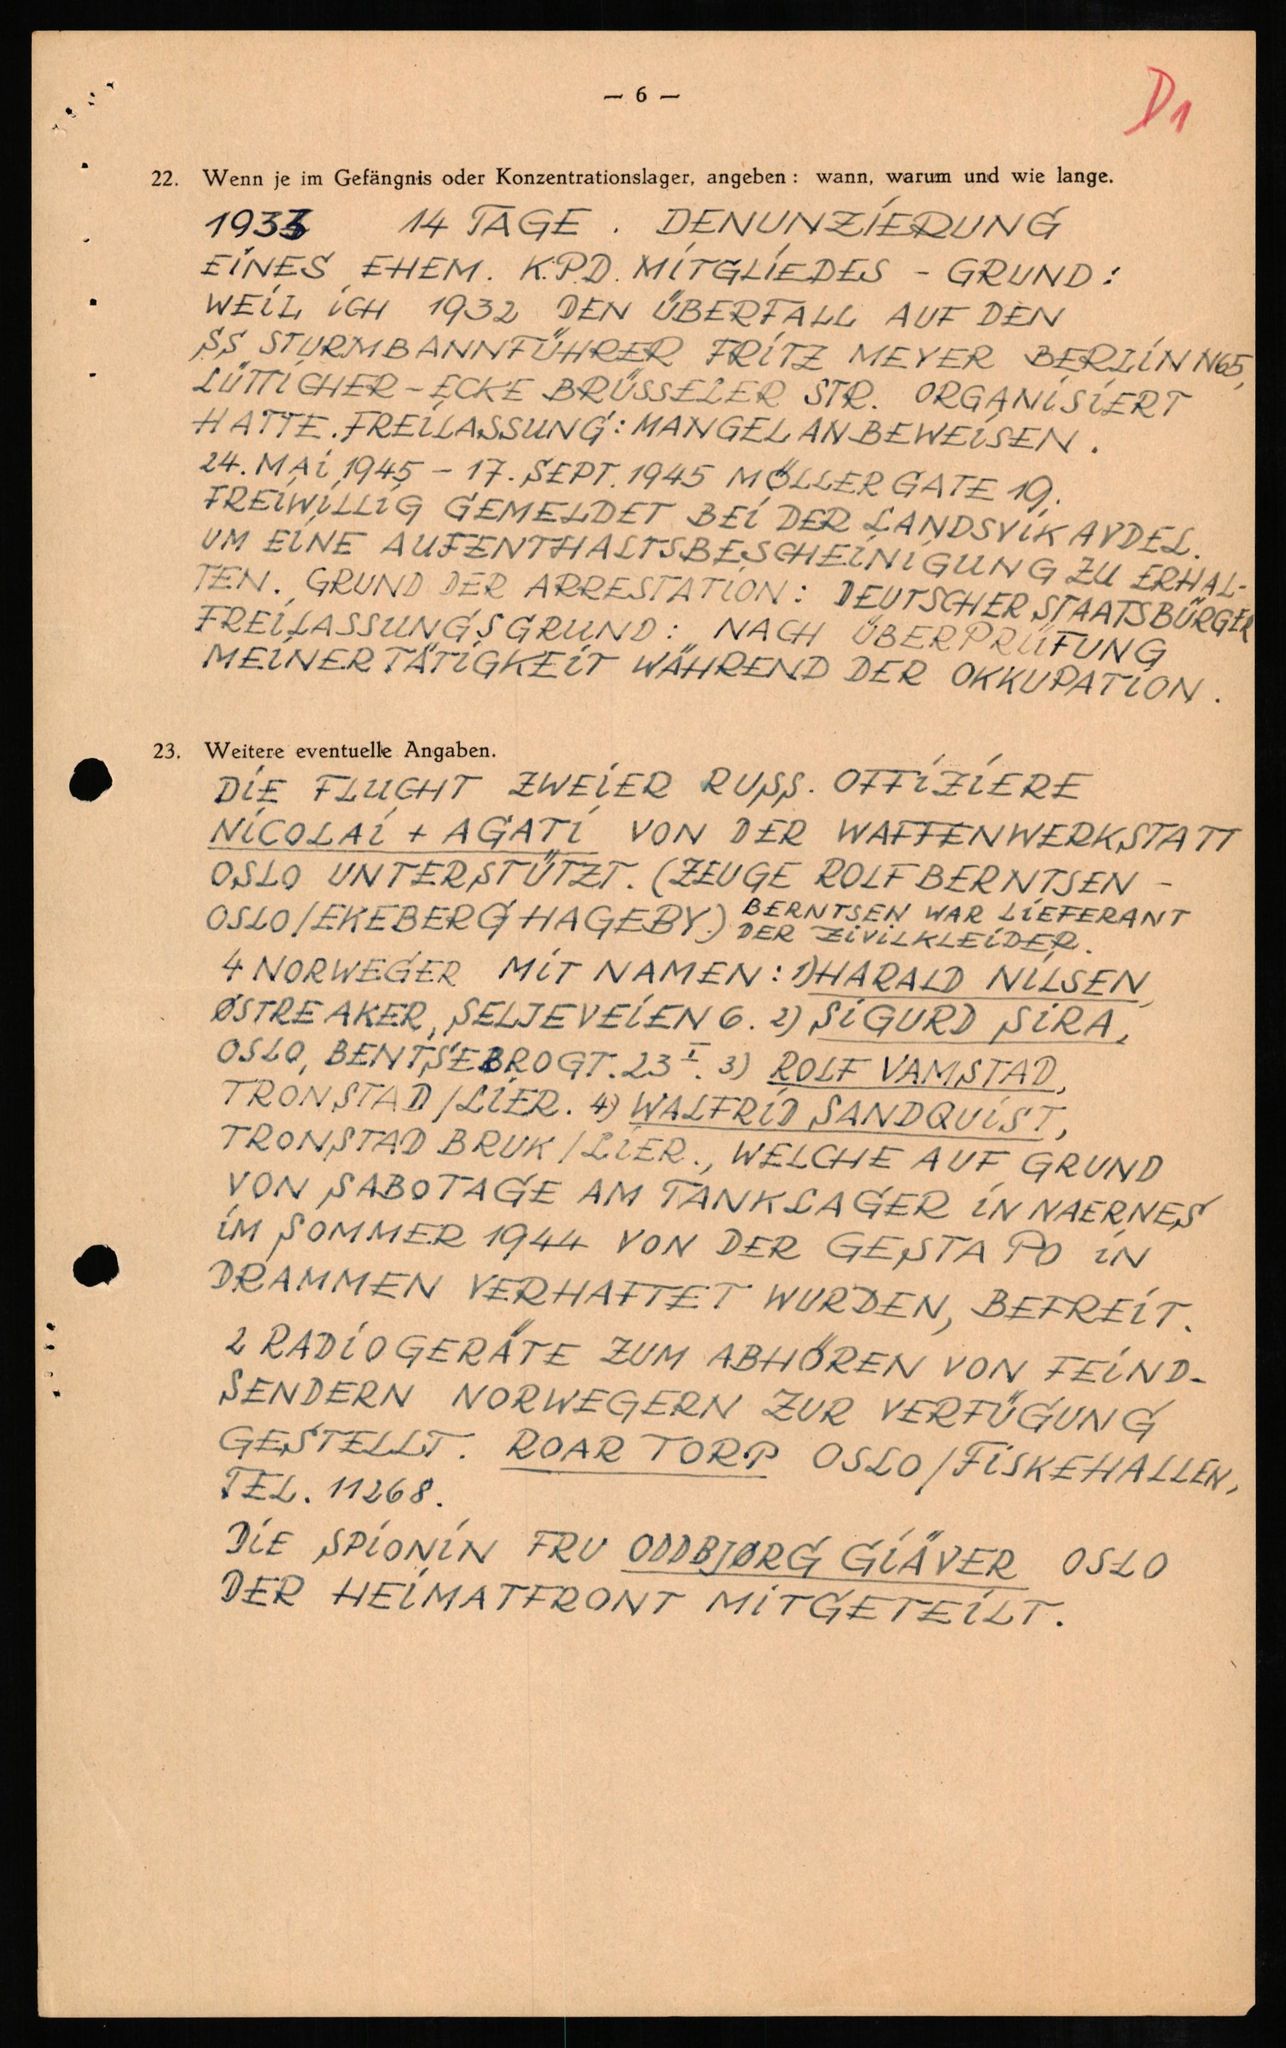 — 6 —
D1
22. Wenn je im Gefängnis oder Konzentrationslager, angeben: wann, warum und wie lange.
1933 14 TAGE. DENUNZIERUNG
EINES EHEM. K.P.D. MITGLIEDES - GRUND:
WEIL ICH 1932 DEN ÜBERFALL AUF DEN
SS STURMBANNFÜHRER FRITZ MEYER BERLIN N65,
LÜTTICHER-ECKE BRÜSSELER STR. ORGANISIERT
HATTE. FREILASSUNG: MANGEL AN BEWEISEN.
24. MAI 1945 - 17. SEPT. 1945 MÖLLERGATE 19.
FREIWILLIG GEMELDET BEI DER LANDSVIKAVDEL.
UM EINE AUFENTHALTSBESCHEINIGUNG ZU ERHAL-
TEN. GRUND DER ARRESTATION: DEUTSCHER STAATSBÜRGER
FREILASSUNGSGRUND: NACH ÜBERPRÜFUNG
MEINER TÄTIGKEIT WÄHREND DER OKKUPATION.
23. Weitere eventuelle Angaben.
DIE FLUCHT ZWEIER RUSS. OFFIZIERE
NICOLAI + AGATI VON DER WAFFENWERKSTATT
OSLO UNTERSTÜTZT. (ZEUGE ROLF BERNTSEN -
OSLO/EKEBERG HAGEBY.) BERNTSEN WAR LIEFERANT
DER ZIVILKLEIDER.
4 NORWEGER MIT NAMEN: 1) HARALD NILSEN,
ØSTREAKER, SELJEVEIEN 6. 2) SIGURD SIRA,
OSLO, BENTSEBROGT. 23 I. 3) ROLF VAMSTAD,
TRONSTAD/LIER. 4) WALFRID SANDQUIST,
TRONSTAD BRUK/LIER., WELCHE AUF GRUND
VON SABOTAGE AM TANKLAGER IN NAERNES
IM SOMMER 1944 VON DER GESTAPO IN
DRAMMEN VERHAFTET WURDEN, BEFREIT.
2 RADIOGERÄTE ZUM ABHÖREN VON FEIND-
SENDERN NORWEGERN ZUR VERFÜGUNG
GESTELLT. ROAR TORP OSLO/FISKEHALLEN,
TEL. 11268.
DIE SPIONIN FRU ODDBJØRG GIÄVER OSLO
DER HEIMATFRONT MITGETEILT.